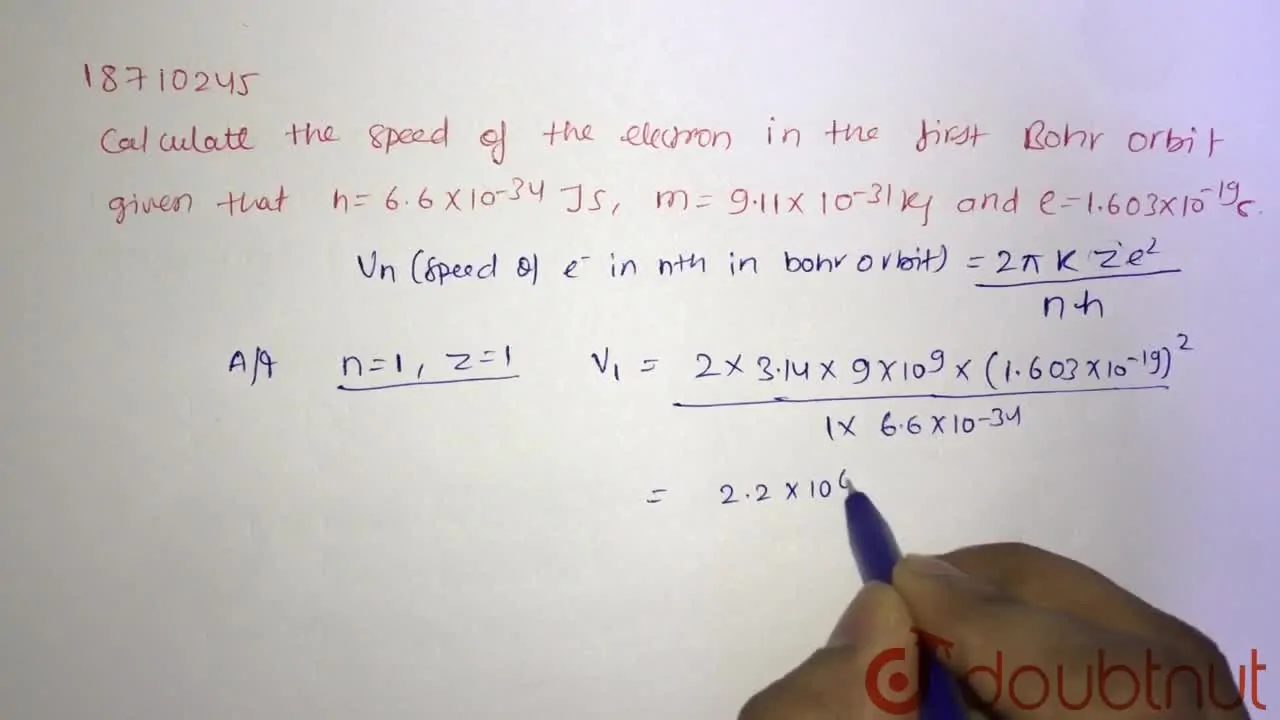 18710245
Calculate the speed of the electron in the first Bohr orbit
given that h=6.6×10⁻³⁴ Js, m=9.11×10⁻³¹kg and e=1.603×10⁻¹⁹c.
Vn (speed of e⁻ in nth in bohr orbit) = 2π K Ze²
nh
A/q n=1, z=1 V₁ = 2×3.14×9×10⁹×(1.603×10⁻¹⁹)²
1× 6.6×10⁻³⁴
= 2.2×10
doubtnut